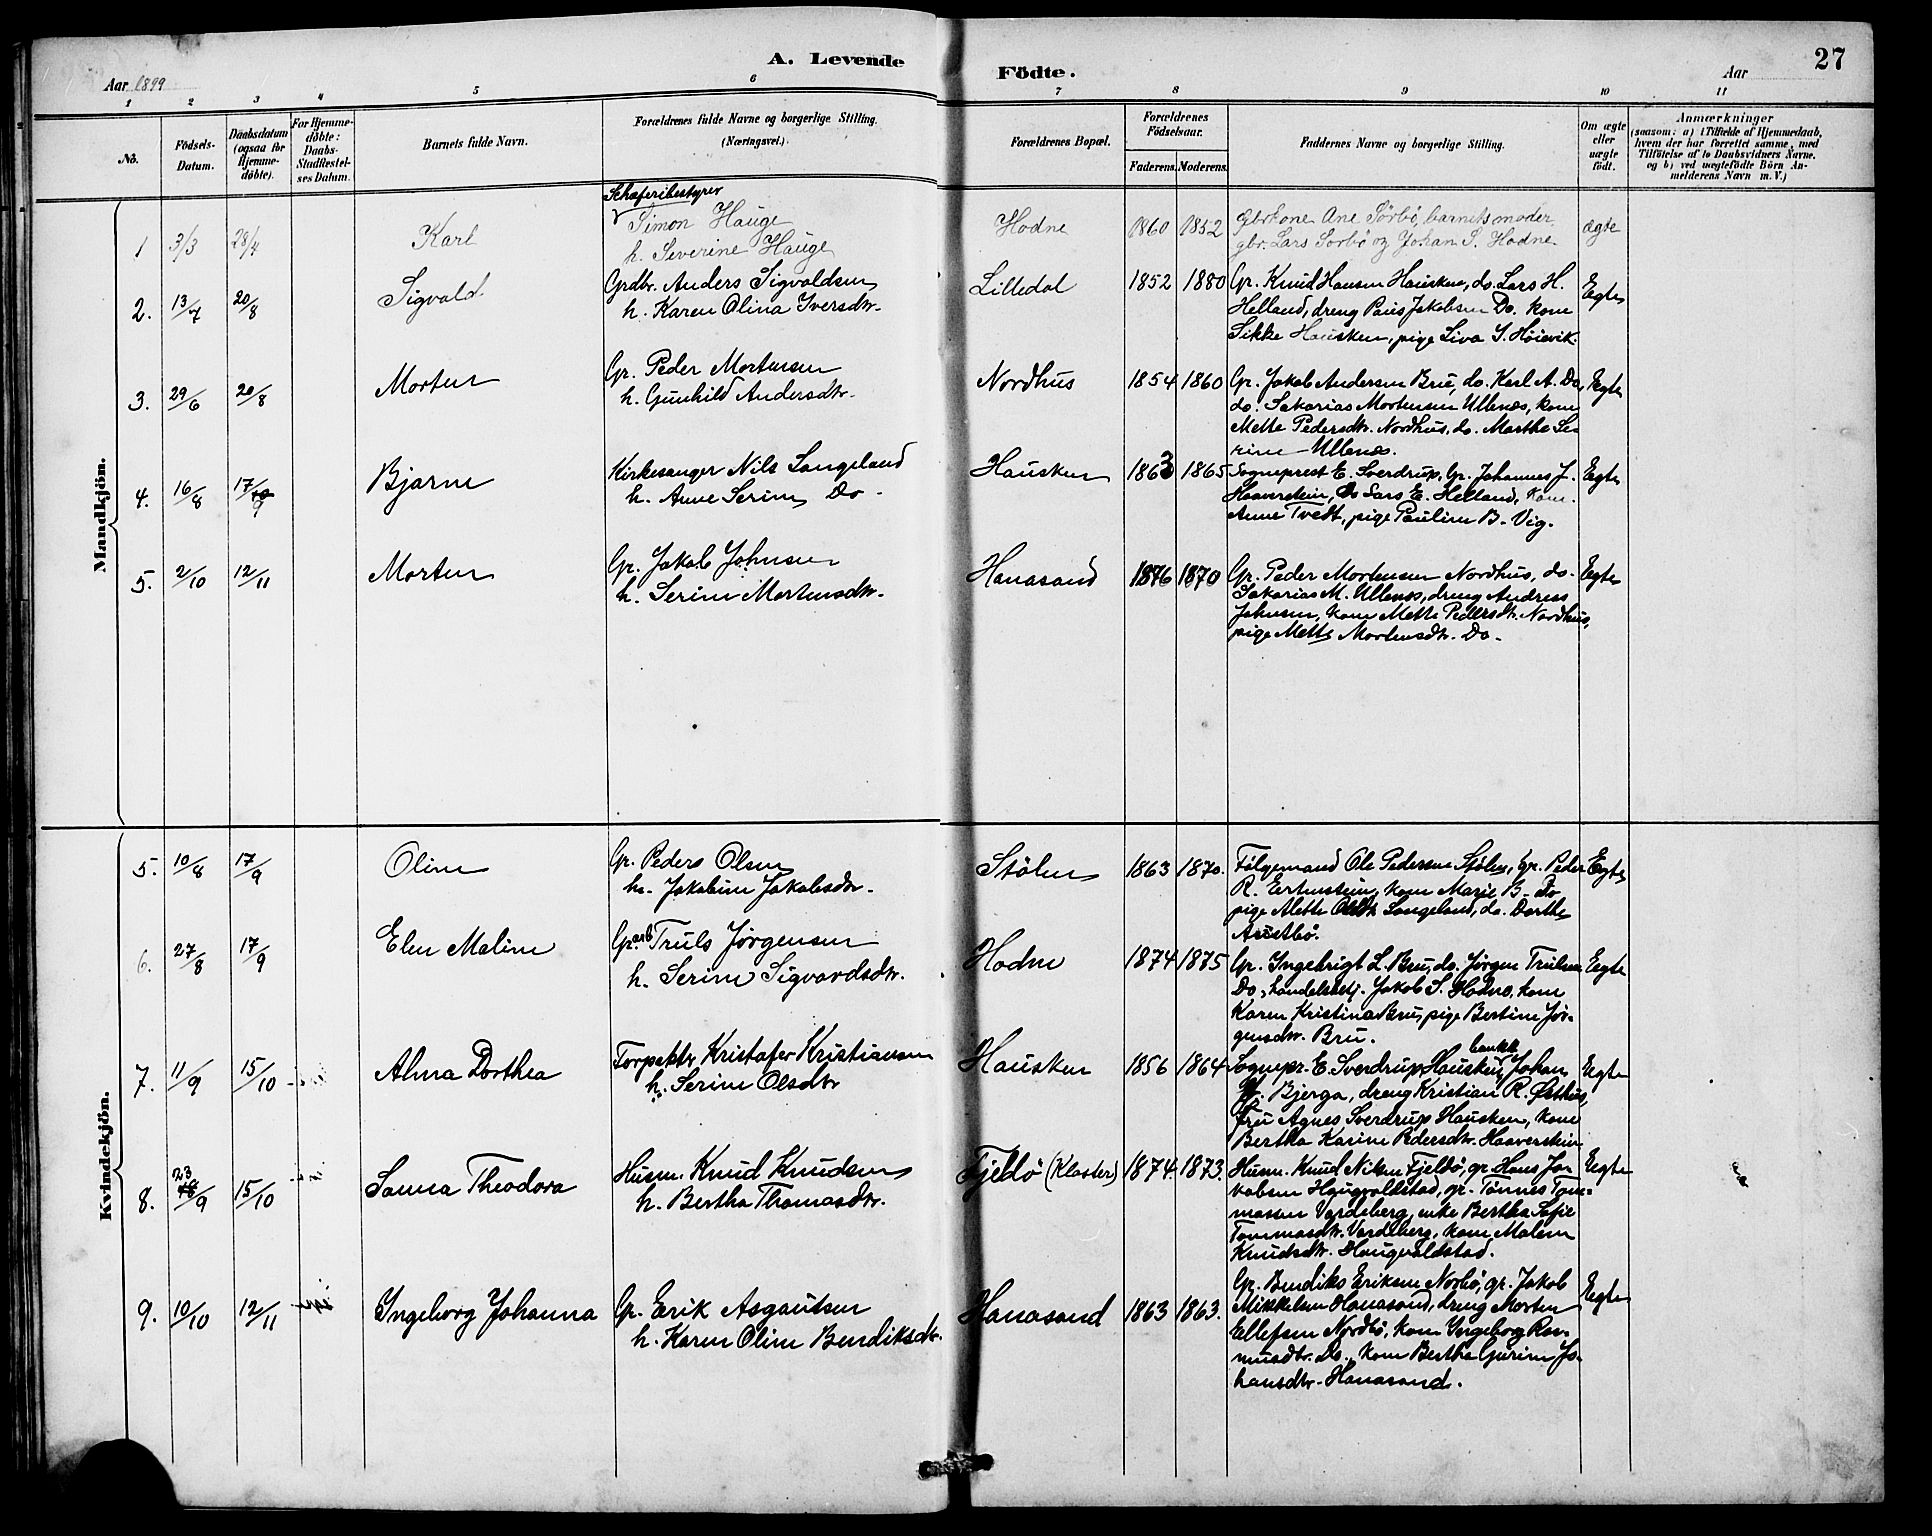 A. Levende Födte.
27
Aar 1899
Aar
1 2 3 4 5 6 7 8 9 10 11
No.
Födsels-Datum.
Daabsdatum (ogsaa för Hjemme-döbte).
For Hjemme-döbte: Daabs-Stadfæstel-ses Datum.
Barnets fulde Navn.
Forældrenes fulde Navne og borgerlige Stilling.
(Næringsvei.)
Forældrenes Bopæl.
Forældrenes Födselsaar.
Faderens. Moderens.
Faddernes Navne og borgerlig Stilling.
Om ægte eller uægte födt.
Anmærkninger
(saasom: a) i Tilfælde af Hjemmedaab,
hvem der har forrettet samme, med
Tilföielse af to Daabsvidners Navne.
og b) ved uægtefödte Börn An-
melderens Navn m. V.)
Mandkjön.
1 3/3 28/4 Karl
Schæferibestyrer
Simon Hauge
h. Severine Hauge
Hodne 1860 1852
gbrkone Ane Sörbö, barnets moder
gbr. Lars Sorbö og Johan S. Hodne
ægte
2. 13/7 20/8 Sigvald.
Grdbr. Anders Sigvaldsen
h. Karen Olina Iversdtr.
Lilledal 1852 1880
Gr. Knud Hansen Hausken, do. Lars H.
Helland, dreng Paus Jakobsen Do. kone
Sikke Hausken, pige Liva S. Høievik.
Egte
3. 29/6 20/8 Morten
Gr. Peder Mortensen
h. Gunhild Andersdtr.
Nordhus 1854 1860
Gr. Jakob Andersen Bru, do. Karl A. Do,
do. Sakarias Mortensen Ullenæs, kone
Mette Pedersdtr. Nordhus, do. Marthe Se-
rine Ullenæs.
Egte
4. 16/8 17/9 Bjarne
Kirkesanger Nils Langeland
h. Anne Serine Do.
Hausken 1863 1865
Sogneprest E. Sverdrup, Gr. Johannes J.
Haaverstein, Do Lars E. Helland, Kone
Anne Tvedt, pige Pauline B. Vig.
Egte
5. 2/10 12/11 Morten
Gr. Jakob Johnsen
h. Serine Mortensdtr.
Hanasand 1876 1870
Gr. Peder Mortensen Nordhus, do.
Sakarias M. Ullenæs, dreng Andreas
Johnsen, kone Mette Pedersdtr. Nordhus,
pige Mette Mortensdtr. Do.
Egte
Kvindekjön.
5. 10/8 17/9 Oline
Gr. Peder Olsen
h. Jakobine Jakobsdtr.
Stölen 1863 1870.
Fölgemand Ole Pedersen Stölen, Gr. Peder
R. Ertenstein, kone Marie B. Do
pige Mette Langeland, do. Dorthe
Austbö.
Egte
6. 27/8 17/9 Elen Maline
Truls Jørgensen
h. Serine Sigvardsdtr.
Hodne 1874 1875
Gr. Ingebrigt L. Bru, do. Jørgen Trulsen
Do, handelsbetj. Jakob S. Hodne, kone
Karen Kristina Bru, pige Bertine Jør-
gensdtr. Bru.
Egte
7. 11/9 15/10 Alma Dorthea
Kristofer Kristiansen
h. Serine Olsdtr
Hausken 1856 1864
Sognepr. E. Sverdrup, Hausken, Johan
Bjerga, dreng Kristian R. Østhus,
Fru Agnes Sverdrup Hausken, kone
Bertha Karine Pedersdtr. Haaverstein
Egte
8. 23/9 15/10 Sanna Theodora
Husm. Knud Knudsen
h. Bertha Thomasdtr.
Fjeldö (Kloster) 1874. 1873.
Husm. Knud Nilsen Fjeldö, gr. Hans Ja-
kobsen Haugvaldstad, gr. Tönnes Tom-
massen Vardeberg, enke Bertha Sofie
Tommasdtr. Vardeberg, kone Malene
Knudsdtr. Haugvaldstad.
Egte
9. 10/10 12/11 Ingeborg Johanna
Gr. Erik Asgautsen
h. Karen Oline Bendiksdtr.
Hanasand 1863 1863.
Gr. Bendiks Eriksen Nordbö, gr. Jakob
Mikkelsen Hanasand, dreng Morten
Ellefsen Nordbö, kone Ingeborg Ras-
musdtr. Do., kone Bertha Gurine Jo-
hansdtr. Hanasand.
Egte